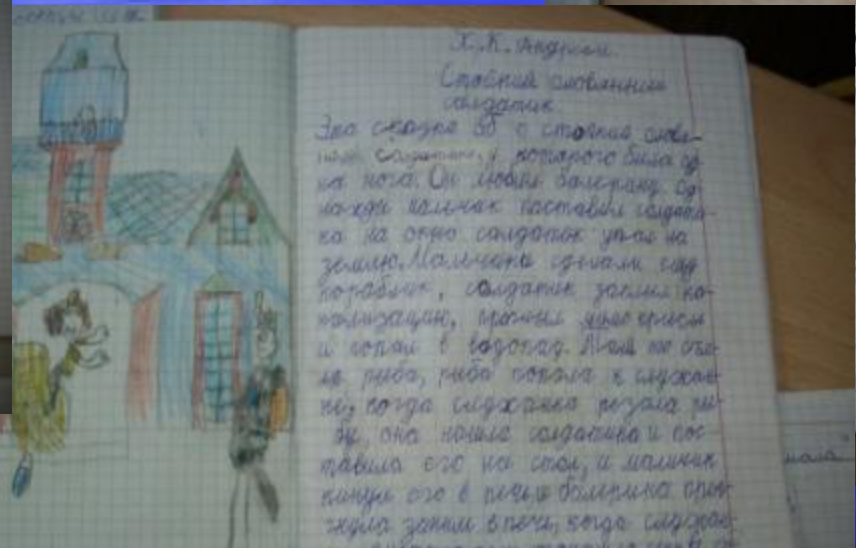 Х. К. Андерсен.
Стойкий оловянный
солдатик.
Эта сказка об о стойкие олове-
ном солдатике, у которого была од
на нога. Он любил балерину. Од-
нажды мальчик поставил солдати-
ка на окно солдатик упал на
землю. Мальчики сделали ему
кораблик, солдатик заплыл ка-
нализацию, проплыл мимо крысы
и попал в водопад. Там его съе-
ла рыба, рыба попала к служан-
ке, когда служанка резала ры-
бу, она нашла солдатика и пос-
тавила его на стол, и мальчик
кинул его в печь и балерина прыг-
нула заним в печь, когда служан-